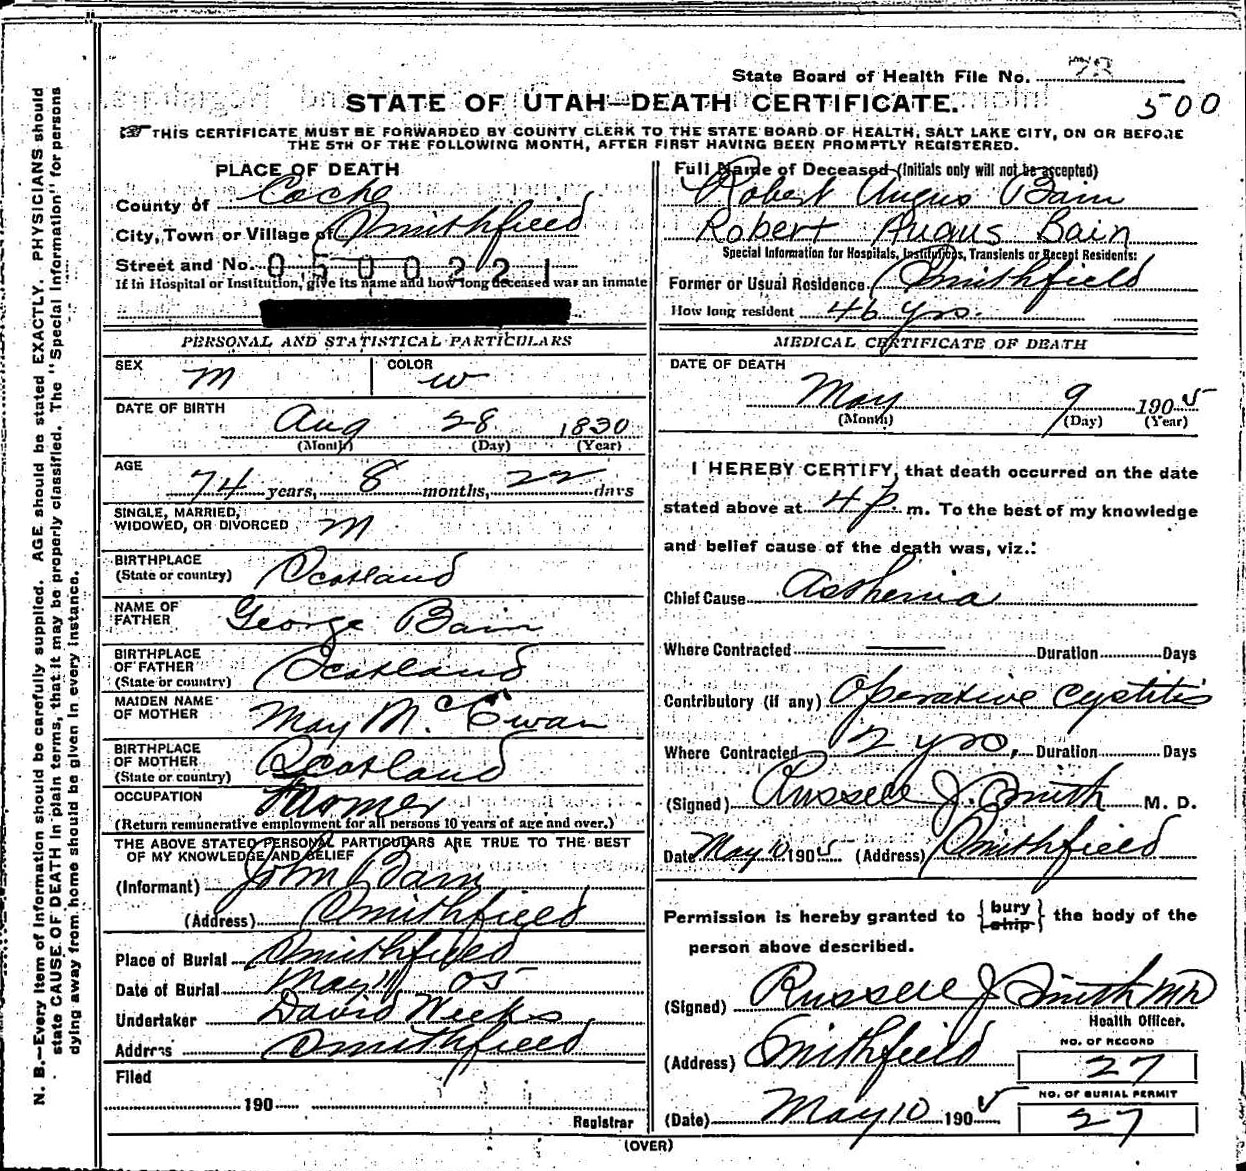 State Board of Health File No. 73
500
STATE OF UTAH—DEATH CERTIFICATE.
☞THIS CERTIFICATE MUST BE FORWARDED BY COUNTY CLERK TO THE STATE BOARD OF HEALTH, SALT LAKE CITY, ON OR BEFORE
THE 5TH OF THE FOLLOWING MONTH, AFTER FIRST HAVING BEEN PROMPTLY REGISTERED.
N. B.—Every item of information should be carefully supplied. AGE should be stated EXACTLY. PHYSICIANS should
state CAUSE OF DEATH in plain terms, that it may be properly classified. The "Special Information" for persons
dying away from home should be given in every instance.
PLACE OF DEATH
County of Cache
City, Town or Village of Smithfield
Street and No. 0500221
If in Hospital or Institution, give its name and how long deceased was an inmate
PERSONAL AND STATISTICAL PARTICULARS
SEX M COLOR W
DATE OF BIRTH
Aug 28 1830
(Month) (Day) (Year)
AGE
74 years, 8 months, 22 days
SINGLE, MARRIED,
WIDOWED, OR DIVORCED M
BIRTHPLACE
(State or country) Scotland
NAME OF
FATHER George Bain
BIRTHPLACE
OF FATHER
(State or country) Scotland
MAIDEN NAME
OF MOTHER May McEwan
BIRTHPLACE
OF MOTHER
(State or country) Scotland
OCCUPATION
(Return remunerative employment for all persons 10 years of age and over.)
THE ABOVE STATED PERSONAL PARTICULARS ARE TRUE TO THE BEST
OF MY KNOWLEDGE AND BELIEF
(Informant) John Bain
(Address) Smithfield
Place of Burial Smithfield
Date of Burial May 11 05
Undertaker David Weeks
Address Smithfield
Filed
190
Registrar
Full Name of Deceased (Initials only will not be accepted)
Robert Angus Bain
Robert Augus Bain
Special Information for Hospitals, Institutions, Transients or Recent Residents:
Former or Usual Residence Smithfield
How long resident 46 yrs.
MEDICAL CERTIFICATE OF DEATH
DATE OF DEATH
May 9 1905
(Month) (Day) (Year)
I HEREBY CERTIFY, that death occurred on the date
stated above at 4 p. m. To the best of my knowledge
and belief cause of the death was, viz.:
Chief Cause Asthenia
Where Contracted — Duration Days
Contributory (if any) Operative Cystitis
Where Contracted 2 yrs, Duration Days
(Signed) Russell J. Smith M. D.
Date May 10 1905 (Address) Smithfield
Permission is hereby granted to {bury
ship} the body of the
person above described.
(Signed) Russell J Smith MD
Health Officer.
(Address) Smithfield
NO. OF RECORD
27
(Date) May 10 1905
NO. OF BURIAL PERMIT
27
(OVER)